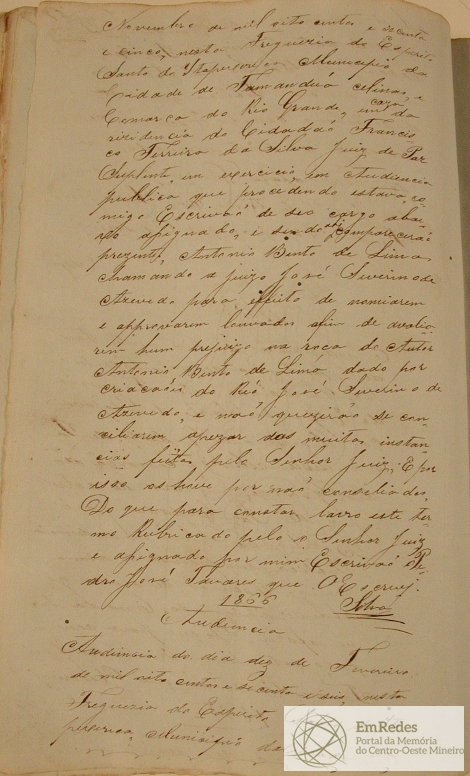 Novembro de mil oito centos e secenta
e cinco, nesta Freguezia do Espirito
Santo do Itapecerica Municipio da
Cidade de Tamanduá Minas, e
Comarca do Rio Grande, em caza da
rizidencia do Cidadão Francis
co Ferreira da Silva Juiz de Paz
Suplente, em exercicio, em Audiencia
publica que procedendo estava, co
migo Escrivaõ de seo cargo abai
xo asignado, e sendo ahi comparecerão
prezente, Antonio Bento de Lima,
chamando a juizo José Severino de
Azevedo para effeito de nomiarem
e approvarem louvados afim de avalia
rem hum prejuizo na roça do Autor
Antonio Bento de Lima dado por
criacaõis do Rio José Severino de
Azevedo, e naõ quezeraõ se con
ciliarem apezar das muitas instan
cias feitas pelo Senhor Juiz, E por
isso os houve por naõ conseliados,
Do que para constar lavro este ter
mo Rubricado pelo o Senhor Juiz
e asignado por mim Escrivaõ Pe
dro José Tavares que O Escrevj.
1866 Silva
Audiencia
Audiencia do dia dez de Fevereiro
de mil oito centos e secenta e seis, nesta
Freguezia do Espirito
Municipio da
EmRedes
Portal da Memória
do Centro-Oeste Mineiro